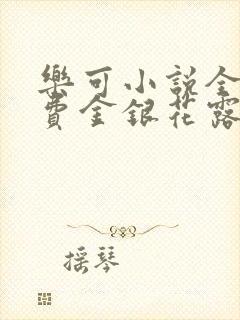 樂可小說全
費金銀花露
摇琴